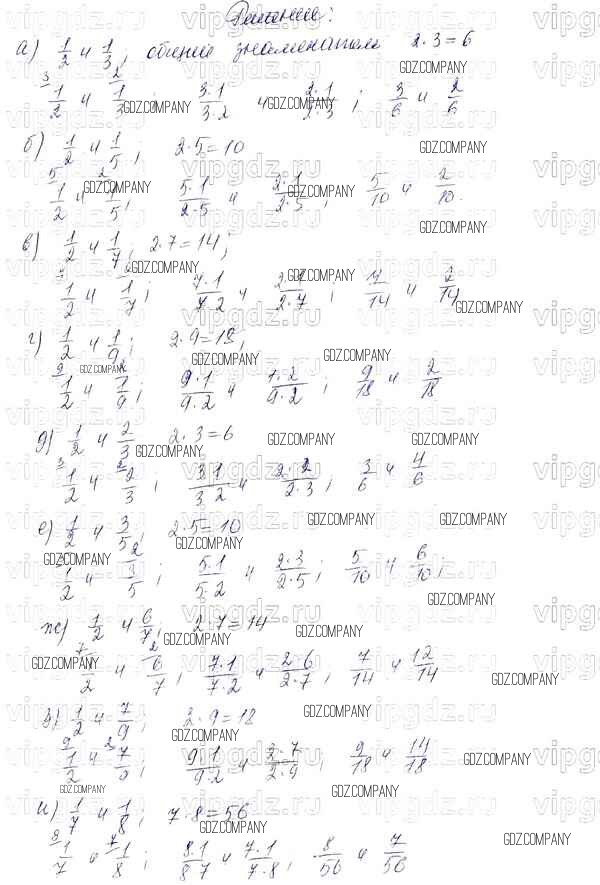 Решение:
а) 1/2 и 1/3; общий знаменатель 2·3=6
1/2 и 1/3; 3·1/3·2 и 2·1/2·3; 3/6 и 2/6
б) 1/2 и 1/5; 2·5=10
1/2 и 1/5; 5·1/2·5 и 2·1/2·5; 5/10 и 2/10.
в) 1/2 и 1/7; 2·7=14;
1/2 и 1/7; 7·1/7·2 и 2·1/2·7; 7/14 и 2/14
г) 1/2 и 1/9; 2·9=18;
1/2 и 1/9; 9·1/9·2 и 1·2/9·2; 9/18 и 2/18
д) 1/2 и 2/3 2·3=6
1/2 и 2/3; 3·1/3·2 и 2·2/2·3; 3/6 и 4/6
е) 1/2 и 3/5, 2·5=10
1/2 и 3/5; 5·1/5·2 и 2·3/2·5; 5/10 и 6/10;
ж) 1/2 и 6/7, 2·7=14
1/2 и 6/7; 7·1/7·2 и 2·6/2·7; 7/14 и 12/14
з) 1/2 и 7/9; 2·9=18
1/2 и 7/9; 9·1/9·2 и 2·7/2·9; 9/18 и 14/18
и) 1/7 и 1/8; 7·8=56
1/7 и 1/8; 8·1/8·7 и 7·1/7·8; 8/56 и 7/56
vipgdz.ru
GDZ.COMPANY